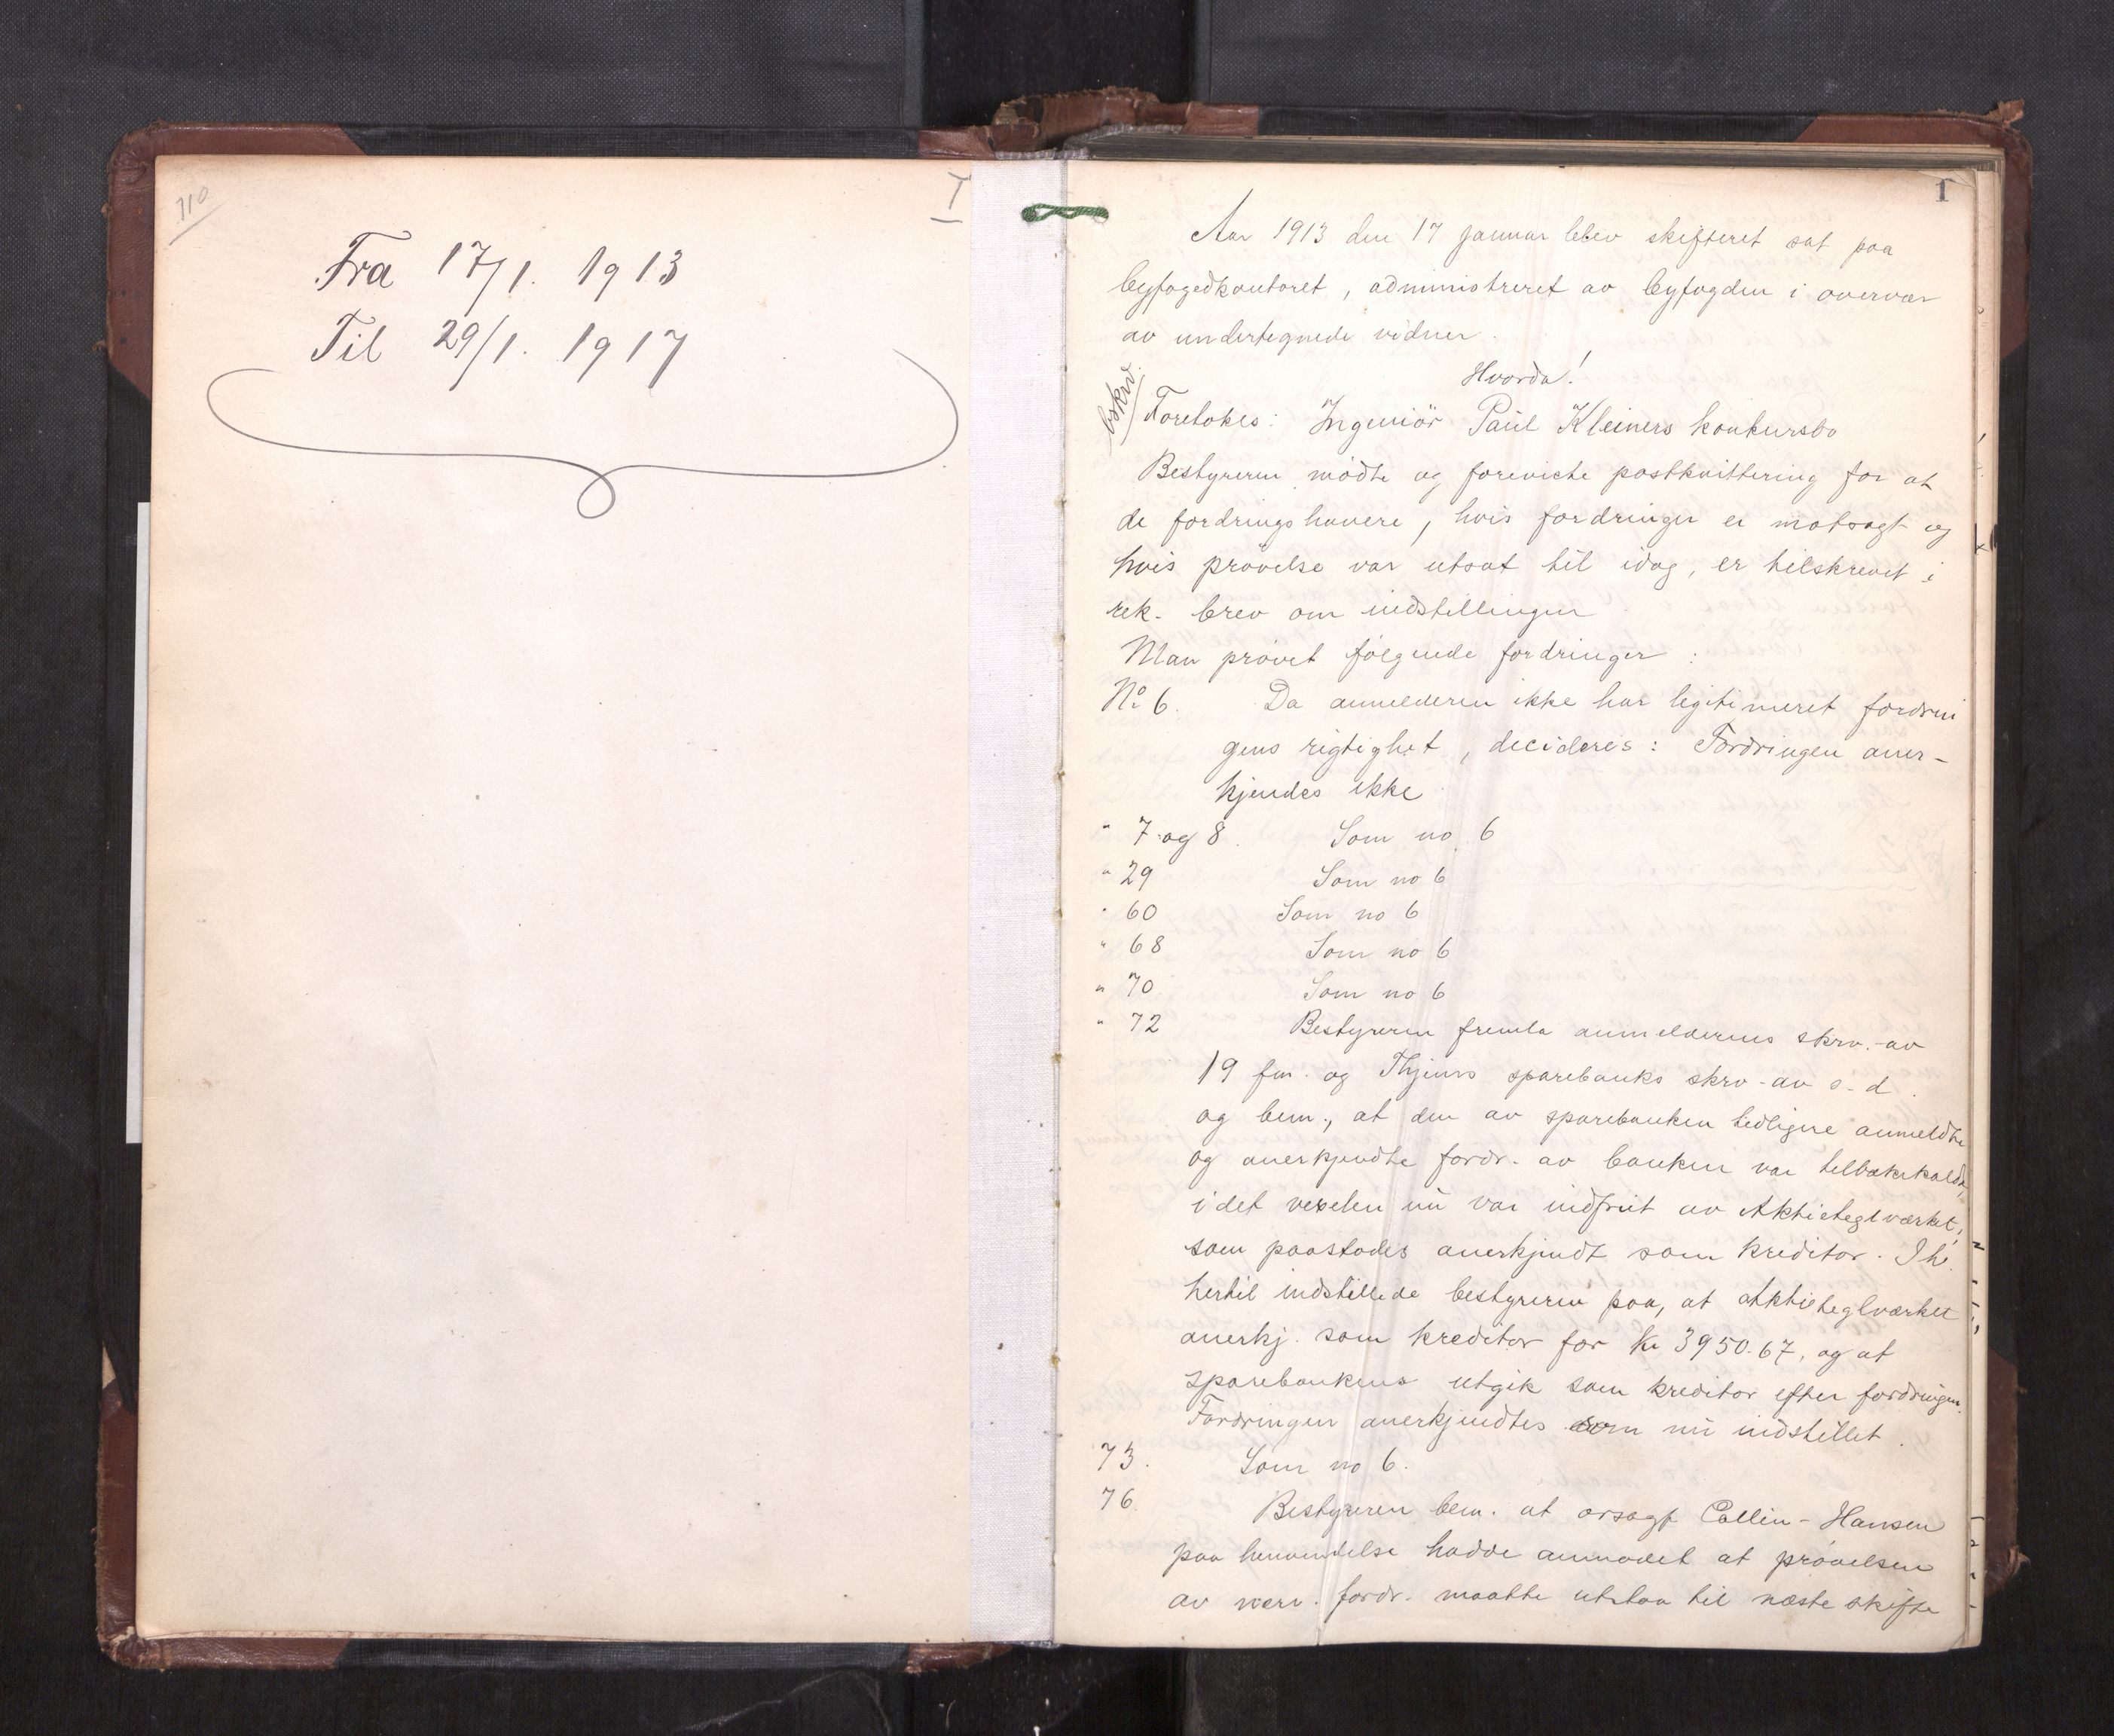 110
I
Fra 17/1. 1913
Til 29/1. 1917
1
Aar 1913 den 17 januar blev skifteret sat paa
byfogedkontoret, administreret av byfogden i overvær
av undertegnede vidner.
Hvorda!
bskrd.
Foretokes: Ingeniör Paul Kleiners konkursbo
Bestyreren mödte og foreviste postkvittering for at
de fordringshavere, hvis fordringer er motsagt og
hvis prövelse var utsat til idag, er tilskrevet i
rek. brev om indstillingen
Man prövet fölgende fordringer:
No 6. Da anmelderen ikke har legitimeret fordrin
gens rigtighet, decideres: Fordringen aner-
kjendes ikke
" 7 og 8. Som no 6
" 29 Som no 6
" 60 Som no 6
" 68 Som no 6
" 70 Som no 6
" 72 Bestyreren fremla anmelderens skrv. av
19 fm. og sparebanks skrv. av s. d.
og bem., at den av sparebanken tidligere anmeldte
og anerkjendte fordr. av banken var tilbakekaldt,
idet vexelen nu var indfriet av Aktieteglverket,
som paastodes anerkjendt som kreditor. I h.
hertil indstillede bestyreren paa, at Aktieteglverket
anerkj. som kreditor for Kr 3950.67, og at
sparebankens utgik som kreditor efter fordringen.
Fordringen anerkjendtes som nu indstillet.
73. Som no 6.
76. Bestyreren bem. at orsagf. Collin-Hansen
paa henvendelse hadde anmodet at prövelsen
av nærv. fordr. maatte utstaa til næste skifte